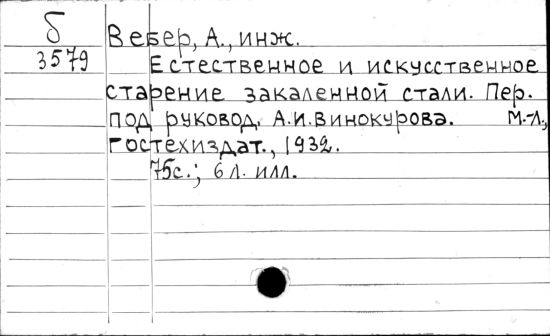 б
3579
Вебер, А., инж.
Естественное и искусственное
старение закаленной стали. Пер.
под руковод. А.И.Винокурова. М.-Л.,
Гостехиздат., 1932.
75с.; 6 л. илл.